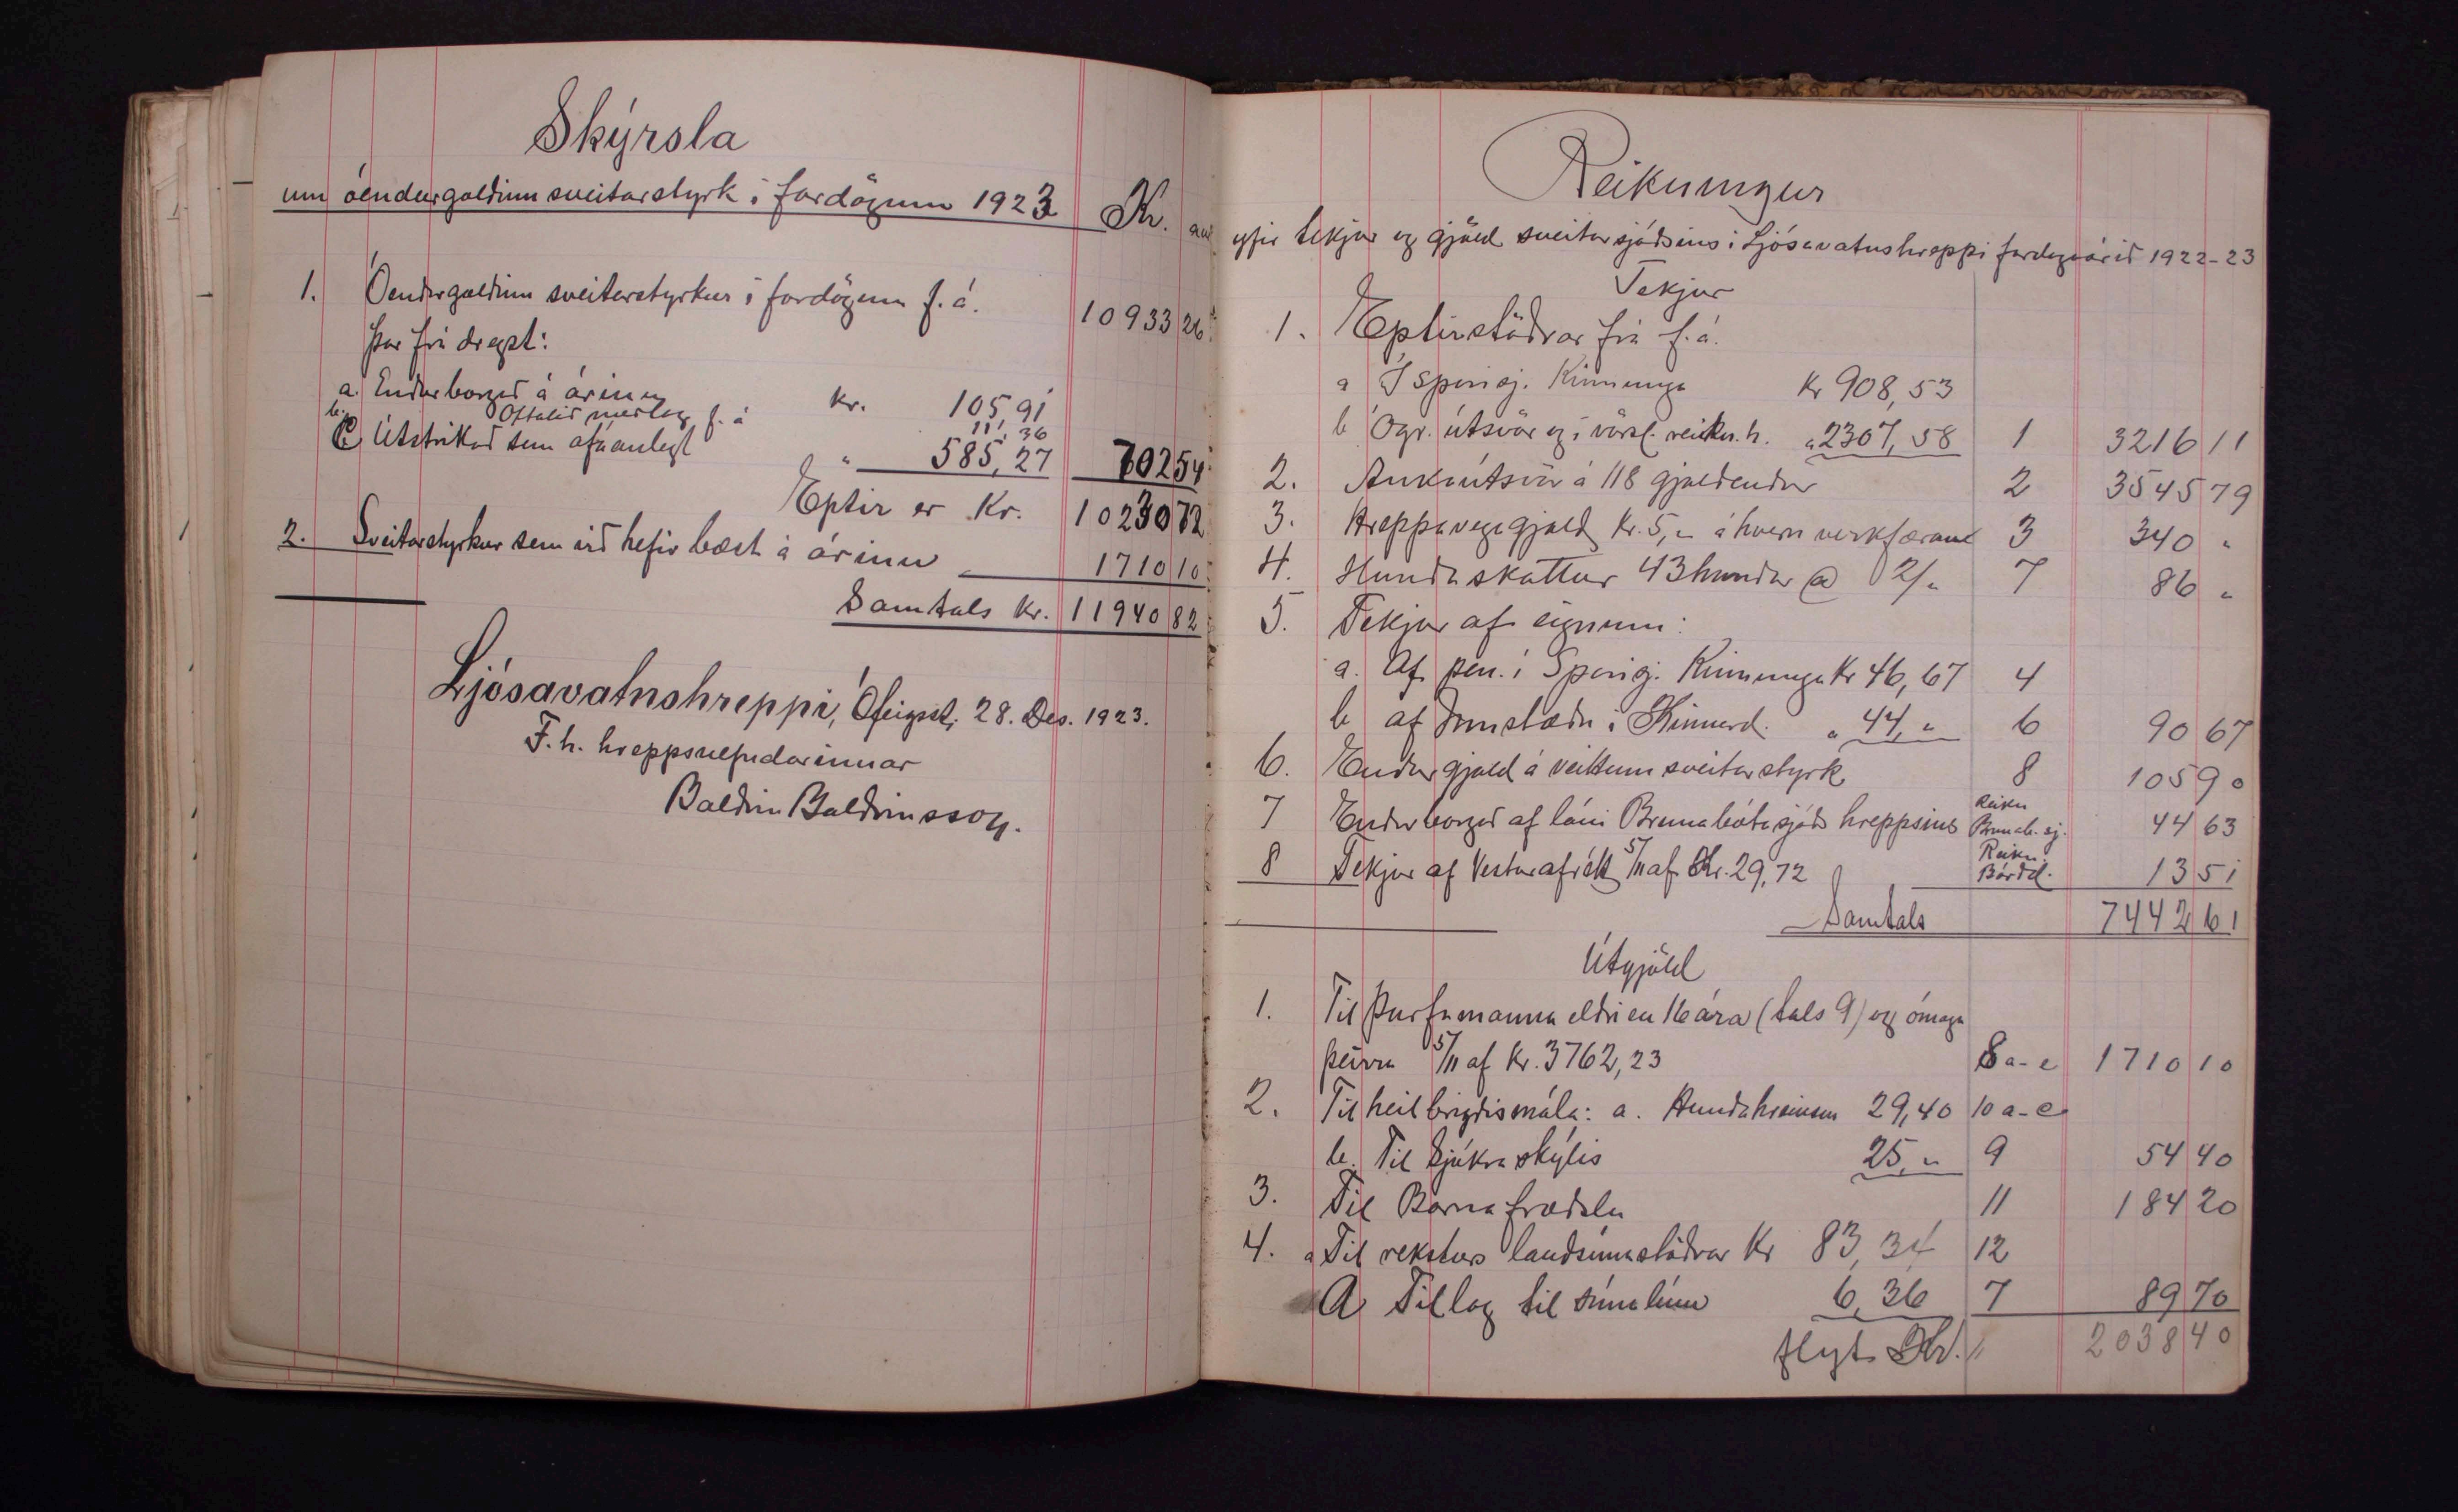 Skýrsla
um óendurgoldinn sveitarstyrk í fardögum 1923 Kr. au
1. Óendurgoldinn sveitarstyrkur í fardögum f. á. 10933 26
Þar frá dregst:
a. Endurborgað á árinu kr. 105,91
b. Oftalið meðlag f. á 11,36
C Útstrikað sem ófáanlegt " 585,27 702 54
Eptir er Kr. 10230 72
2. Sveitarstyrkur sem við hefir bæst á árinu 1710 10
Samtals Kr. 11940 82
Ljósavatnshreppi, Ófeigsst. 28. Des. 1923.
F. h. hreppsnefndarinnar
Baldvin Baldvinsson.
Reikningur
yfir tekjur og gjöld sveitarsjóðsins í Ljósavatnshreppi fardagaárið 1922-23
Tekjur
1. Eptirstöðvar frá f. á.
a Í Sparisj. Kinnunga Kr 908,53
b Ógr. útsvör og í vörsl. reikn. h. " 2307,58 1 3216 11
2. Aukaútsvör á 118 gjaldendur 2 3545 79
3. Hreppavegagjald Kr. 5,- á hvern verkfæran 3 340 "
4. Hundaskattur 43 hundar @ 2/" 7 86 "
5. Tekjur af eignum:
a. Af pen. í Sparisj. Kinnunga Kr 46,67 4
b af Innstæðu í Kinnard. " 44," 6 90 67
6. Endurgjald á veittum sveitarstyrk 8 105 90
7 Endurborgað af láni Brunabótasjóðs hreppsins Reikn Brunab. sj. 44 63
8 Tekjur af Vesturafrétt 5/11 af Kr. 29,72 Reikn. Bárðd. 13 51
Samtals 7442 61
Útgjöld
1. Til Þurfamanna eldri en 16 ára (tals 9) og ómaga
þeirra 5/11 af Kr. 3762,23 8 a-e 1710 10
2. Til heilbrigðismála: a. Hundahreinsun 29,40 10 a-e
b. Til Sjúkraskýlis 25," 9 54 40
3. Til Barnafræðslu 11 184 20
4. a Til reksturs landsímastöðvar Kr 83,34 12
Tillag til símalínu 6,36 7 89 70
flyt Kr. " 2038 40